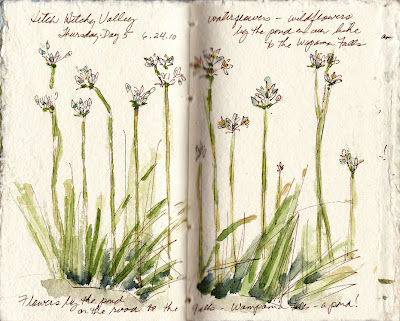 Hitch Hetchy Valley
Thursday, Day 5 6.24.10
waterflowers - wildflowers
by the pond on our hike
to the Wapama Falls
Flowers by the pond
on the road to the Falls - Wampama Falls - a pond!